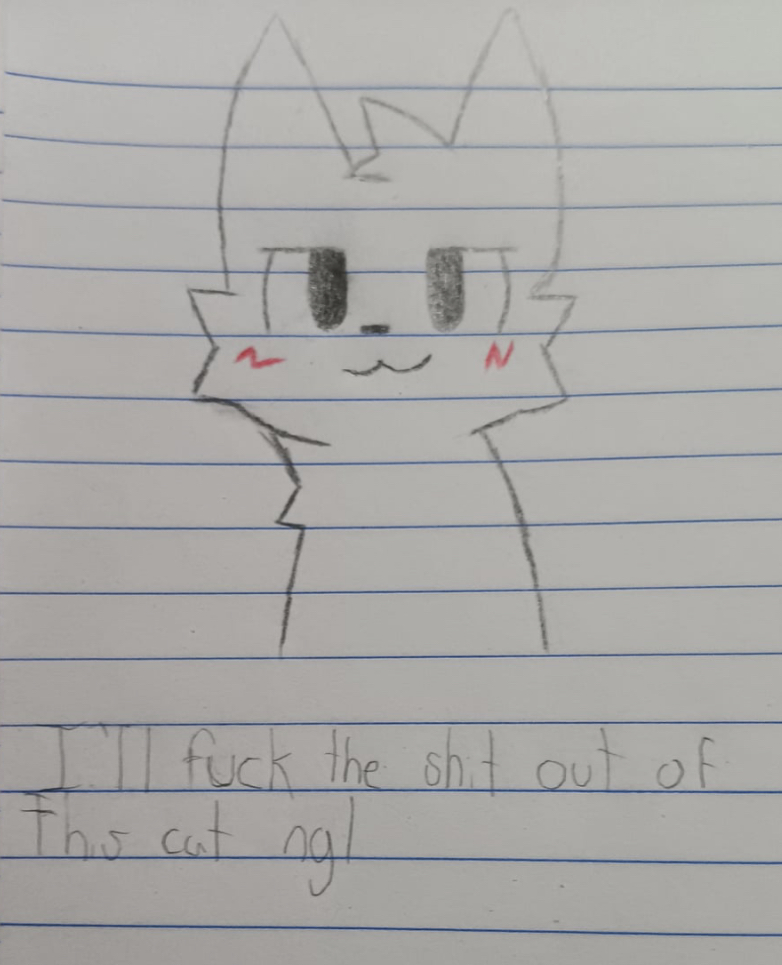 I'll fuck the shit out of
This cat ngl